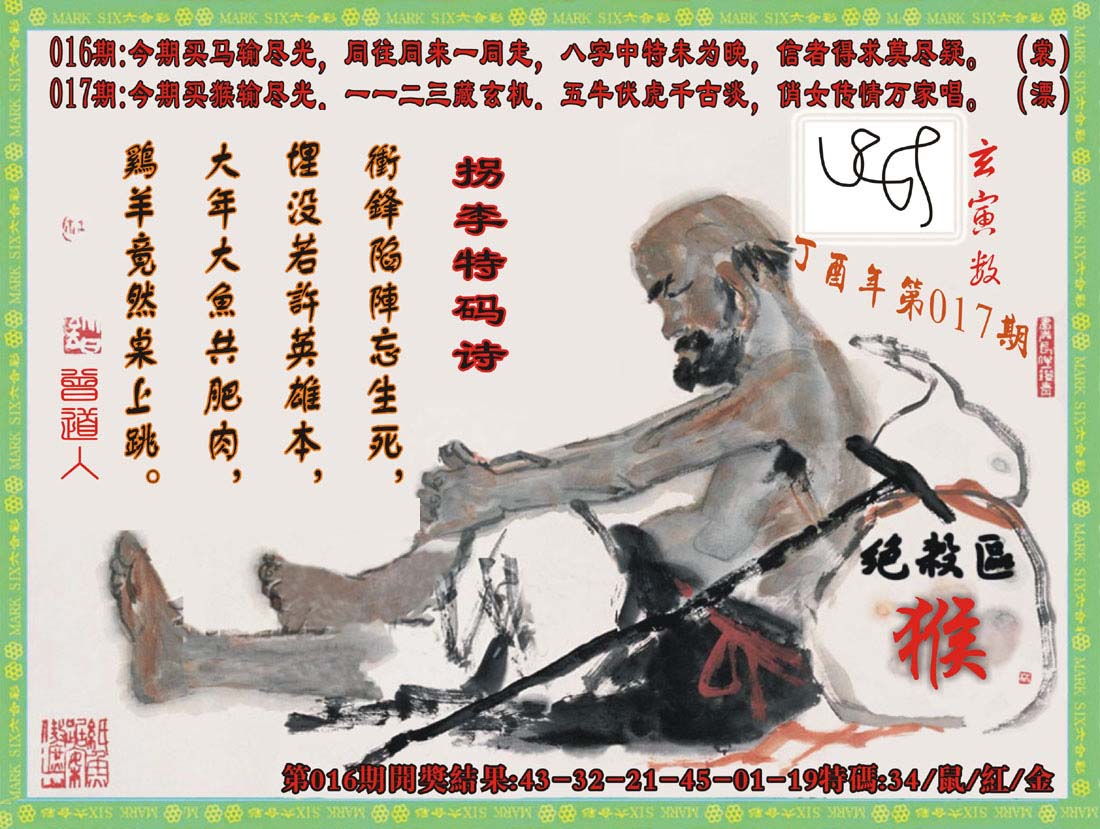 MARK SIX六合彩 MARK SIX六合彩 MARK SIX六合彩 MARK SIX六合彩
016期:今期买马输尽光，同往同来一同走，八字中特未为晚，信者得求莫尽疑。（裳）
017期:今期买猴输尽光．一一二三藏玄机．五牛伏虎千古淡，俏女传情万家唱。（漂）
玄寅数
丁酉年第017期
拐李特码诗
衝鋒陷陣忘生死，
埋没若許英雄本，
大年大魚共肥肉，
鷄羊竟然桌上跳。
曾道人
绝殺區
猴
第016期開獎結果:43-32-21-45-01-19特碼:34/鼠/紅/金